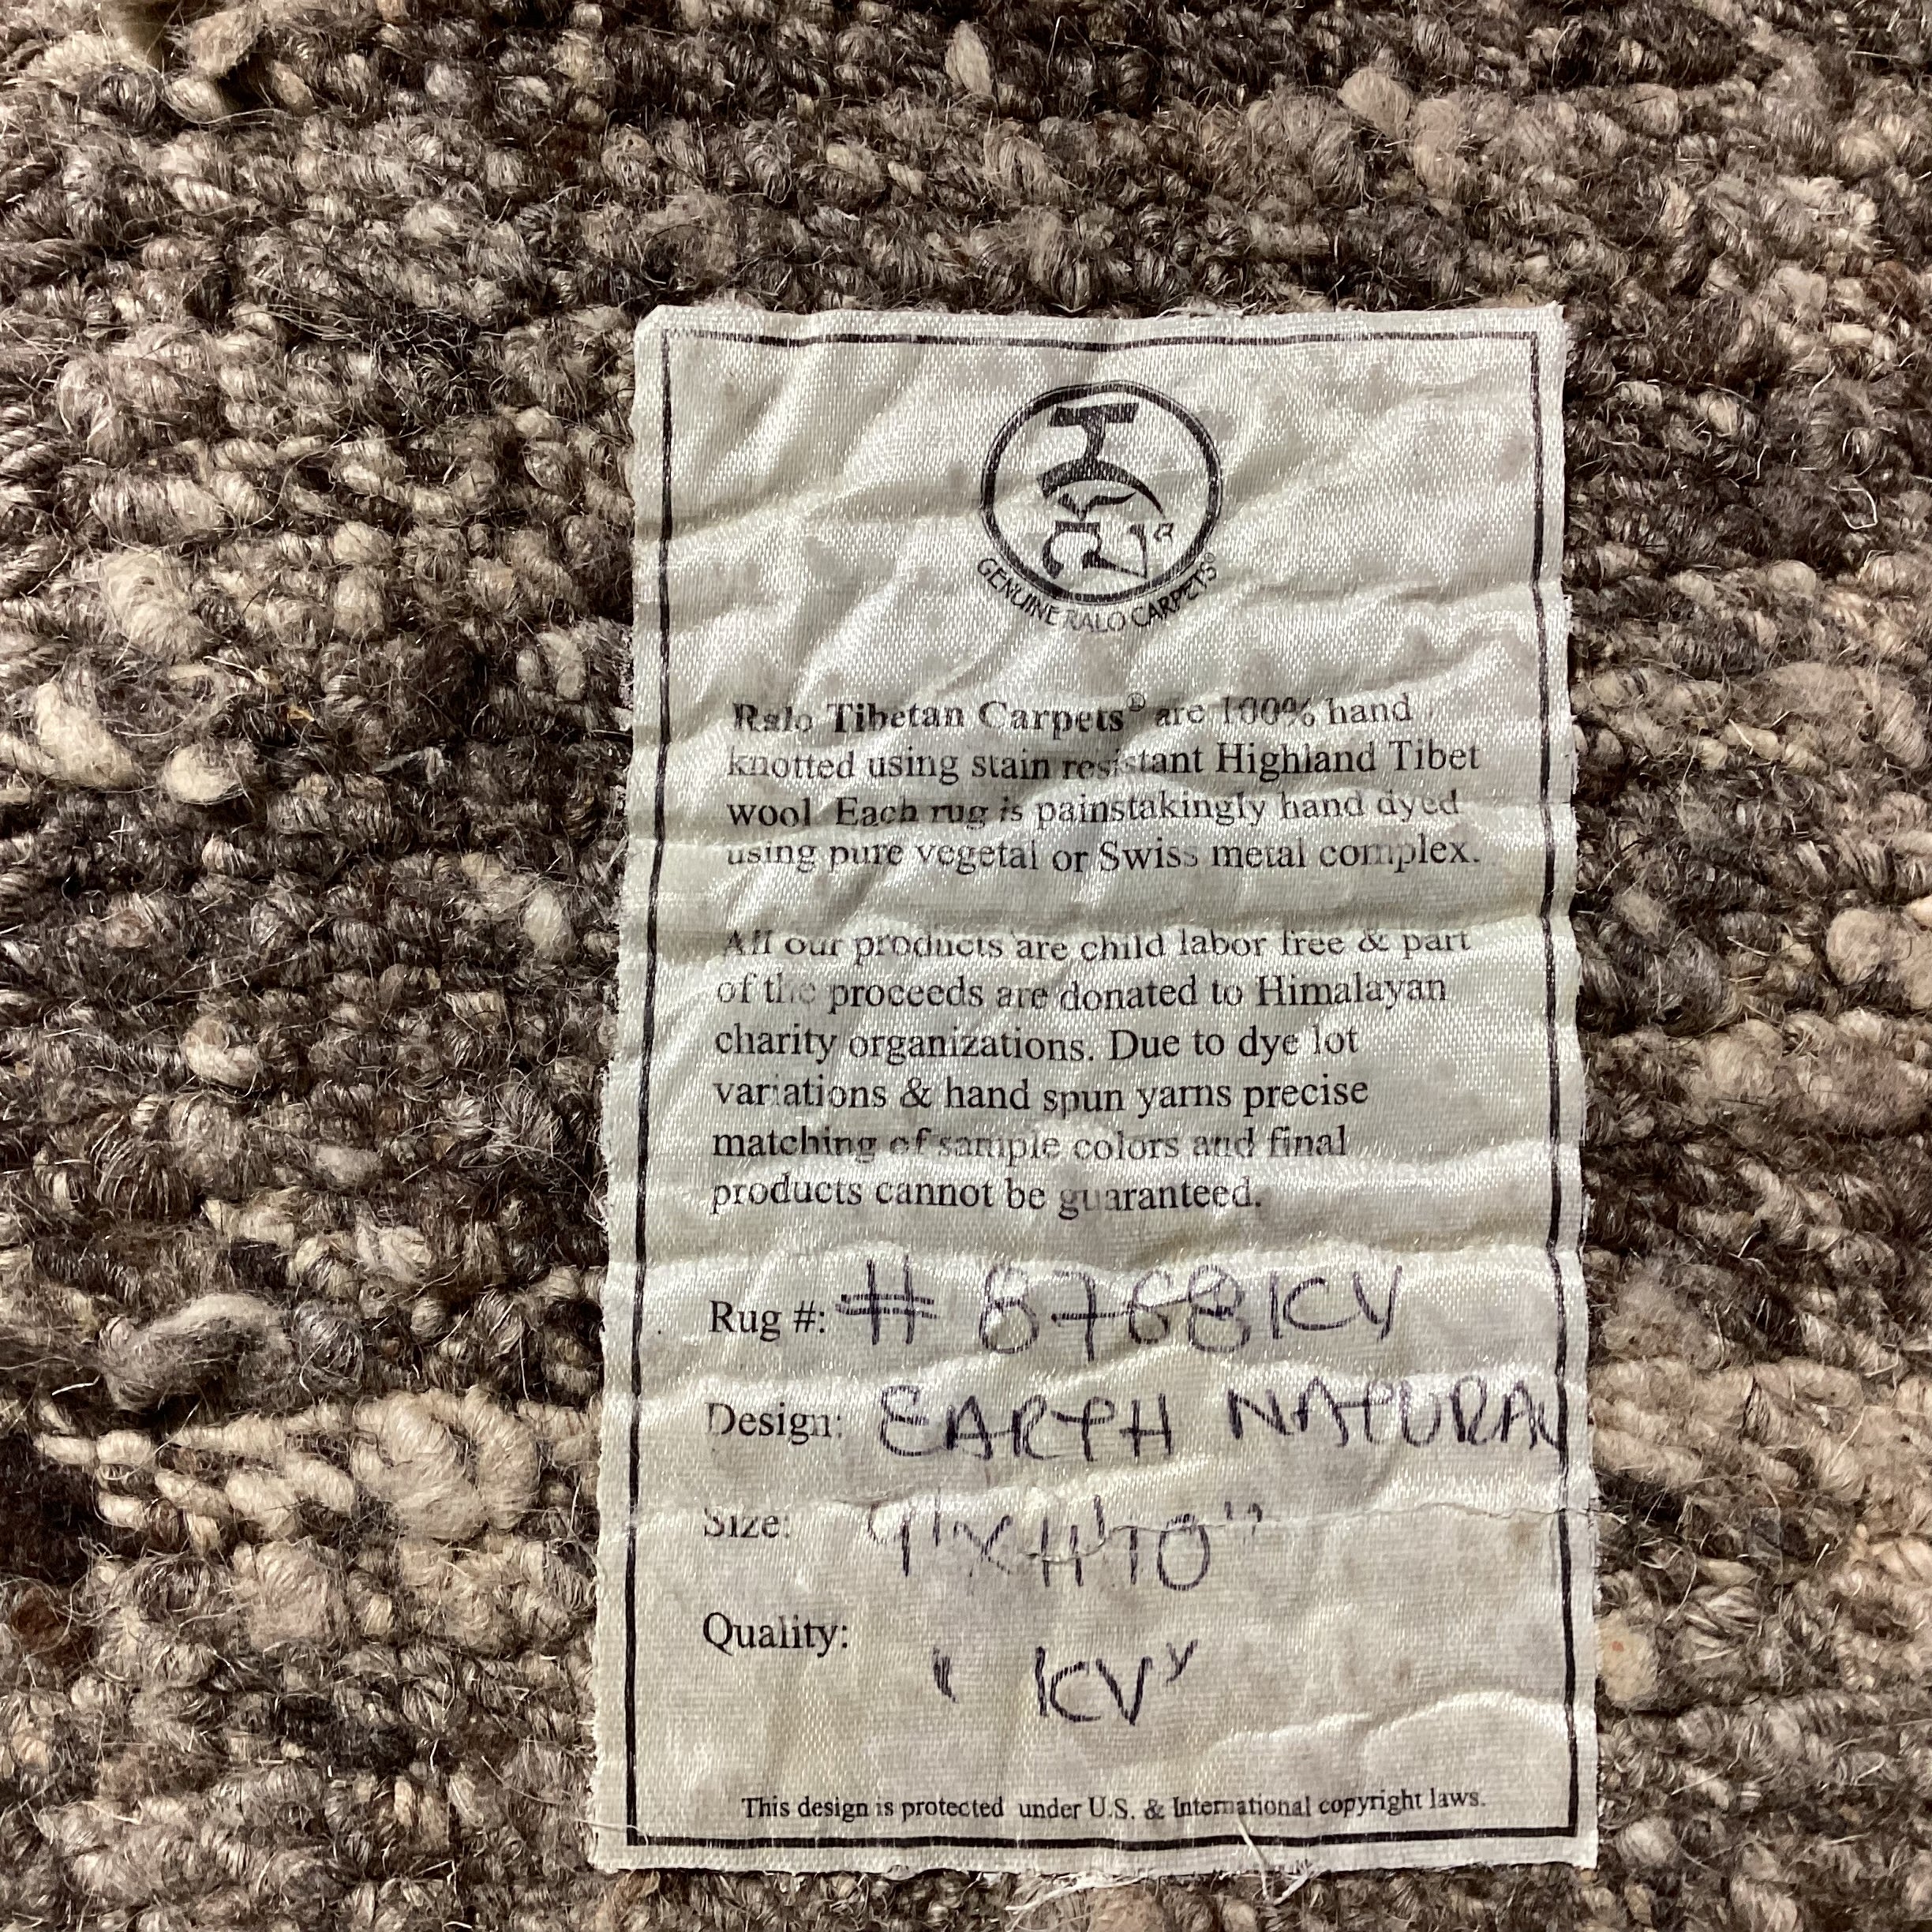 GENUINE RALO CARPETS®
Ralo Tibetan Carpets® are 100% hand
knotted using stain resistant Highland Tibet
wool. Each rug is painstakingly hand dyed
using pure vegetal or Swiss metal complex.
All our products are child labor free & part
of the proceeds are donated to Himalayan
charity organizations. Due to dye lot
variations & hand spun yarns precise
matching of sample colors and final
products cannot be guaranteed.
Rug #: # 8768KV
Design: EARTH NATURAL
Size: 9'X11'10"
Quality:
"KV"
This design is protected under U.S. & International copyright laws.